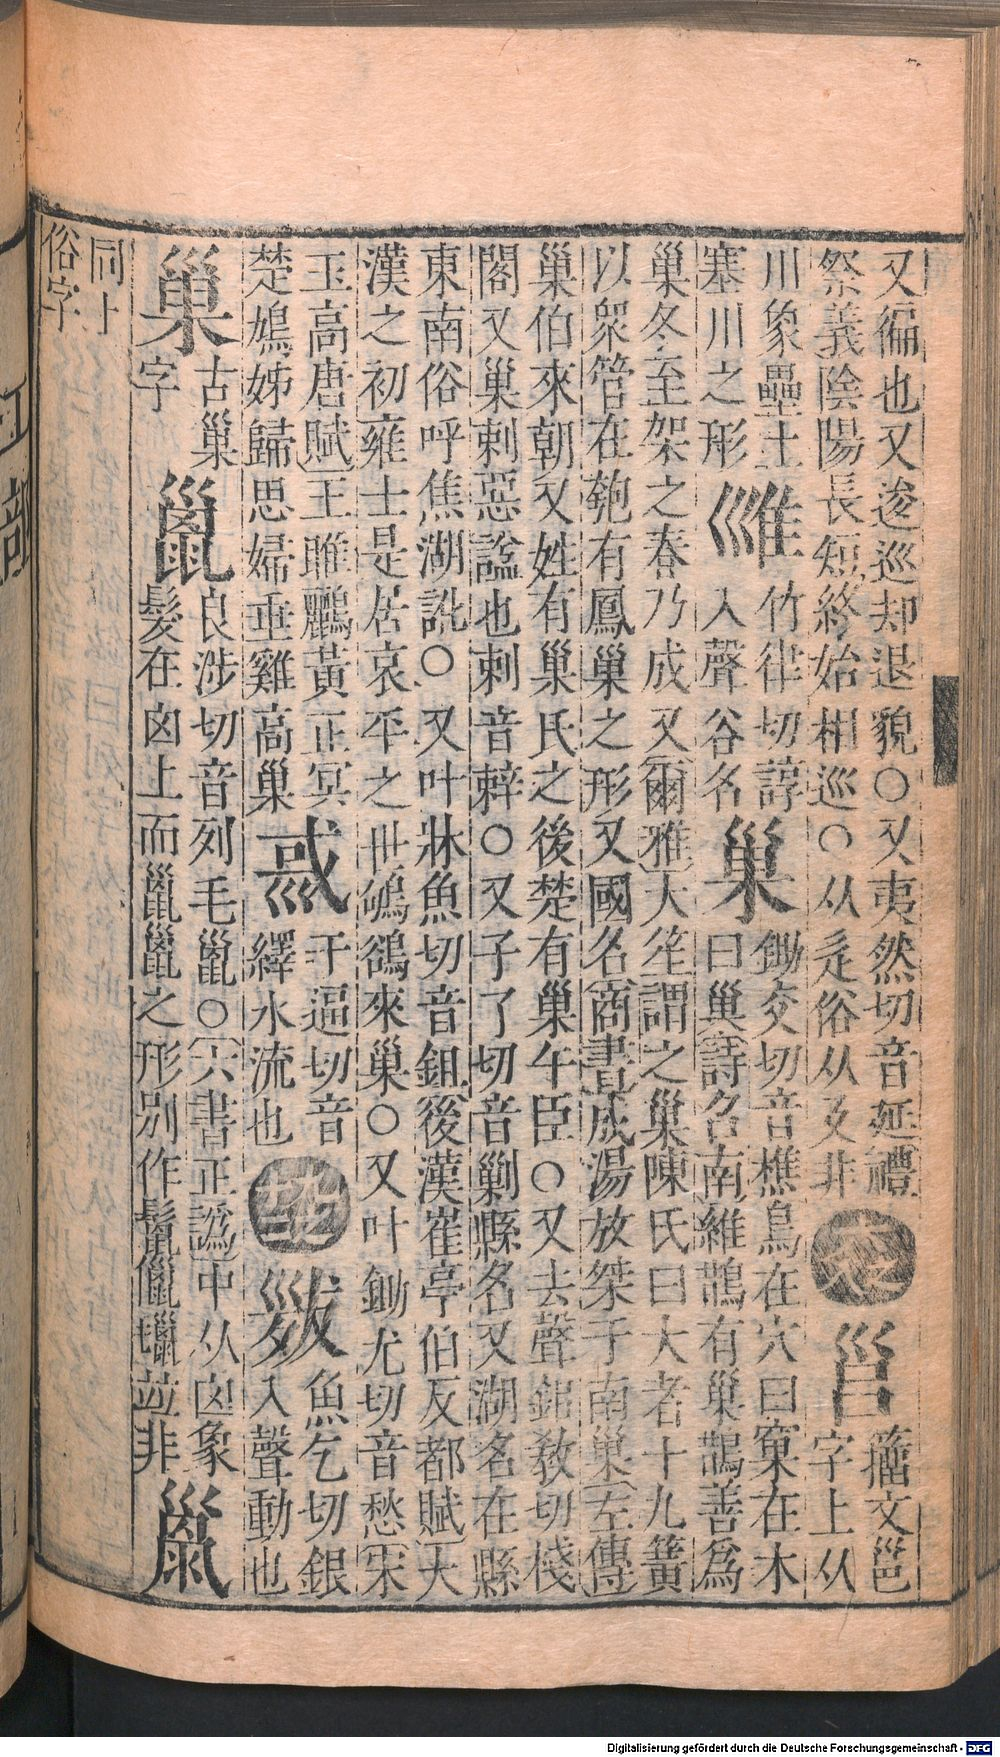 又徧也又逡巡却退貌○又夷然切音延禮
祭義陰陽長短終始相巡○从辵俗从⺡非
籀文邕
字上从
川象壘土
塞川之形
竹律切諄
入聲谷名
巢
鋤交切音樵鳥在穴曰窠在木
曰巢詩召南維鵲有巢鵲善爲
巢冬至架之春乃成又爾雅大笙謂之巢陳氏曰大者十九簧
以衆管在匏有鳳巢之形又國名商書成湯放桀于南巢左傳
巢伯來朝又姓有巢氏之後楚有巢午臣○又去聲鉏敎切棧
閣又巢刺惡諡也刺音辢○又子了切音剿縣名又湖名在縣
東南俗呼焦湖訛○又叶牀魚切音鉏後漢崔亭伯反都賦天
漢之初雍士是居哀平之世鴝鵒來巢○又叶鋤尤切音愁宋
玉高唐賦王雎鸝黃正冥
楚鳩姊歸思婦垂雞高巢
惑
于逼切音
繹水流也
魚乞切銀
入聲動也
巢
古巢
字
巤
良涉切音列毛巤○六書正譌中从囟象
髮在囟上而巤巤之形別作鬣儠擸竝非
同上
俗字
Digitalisierung gefördert durch die Deutsche Forschungsgemeinschaft - DFG